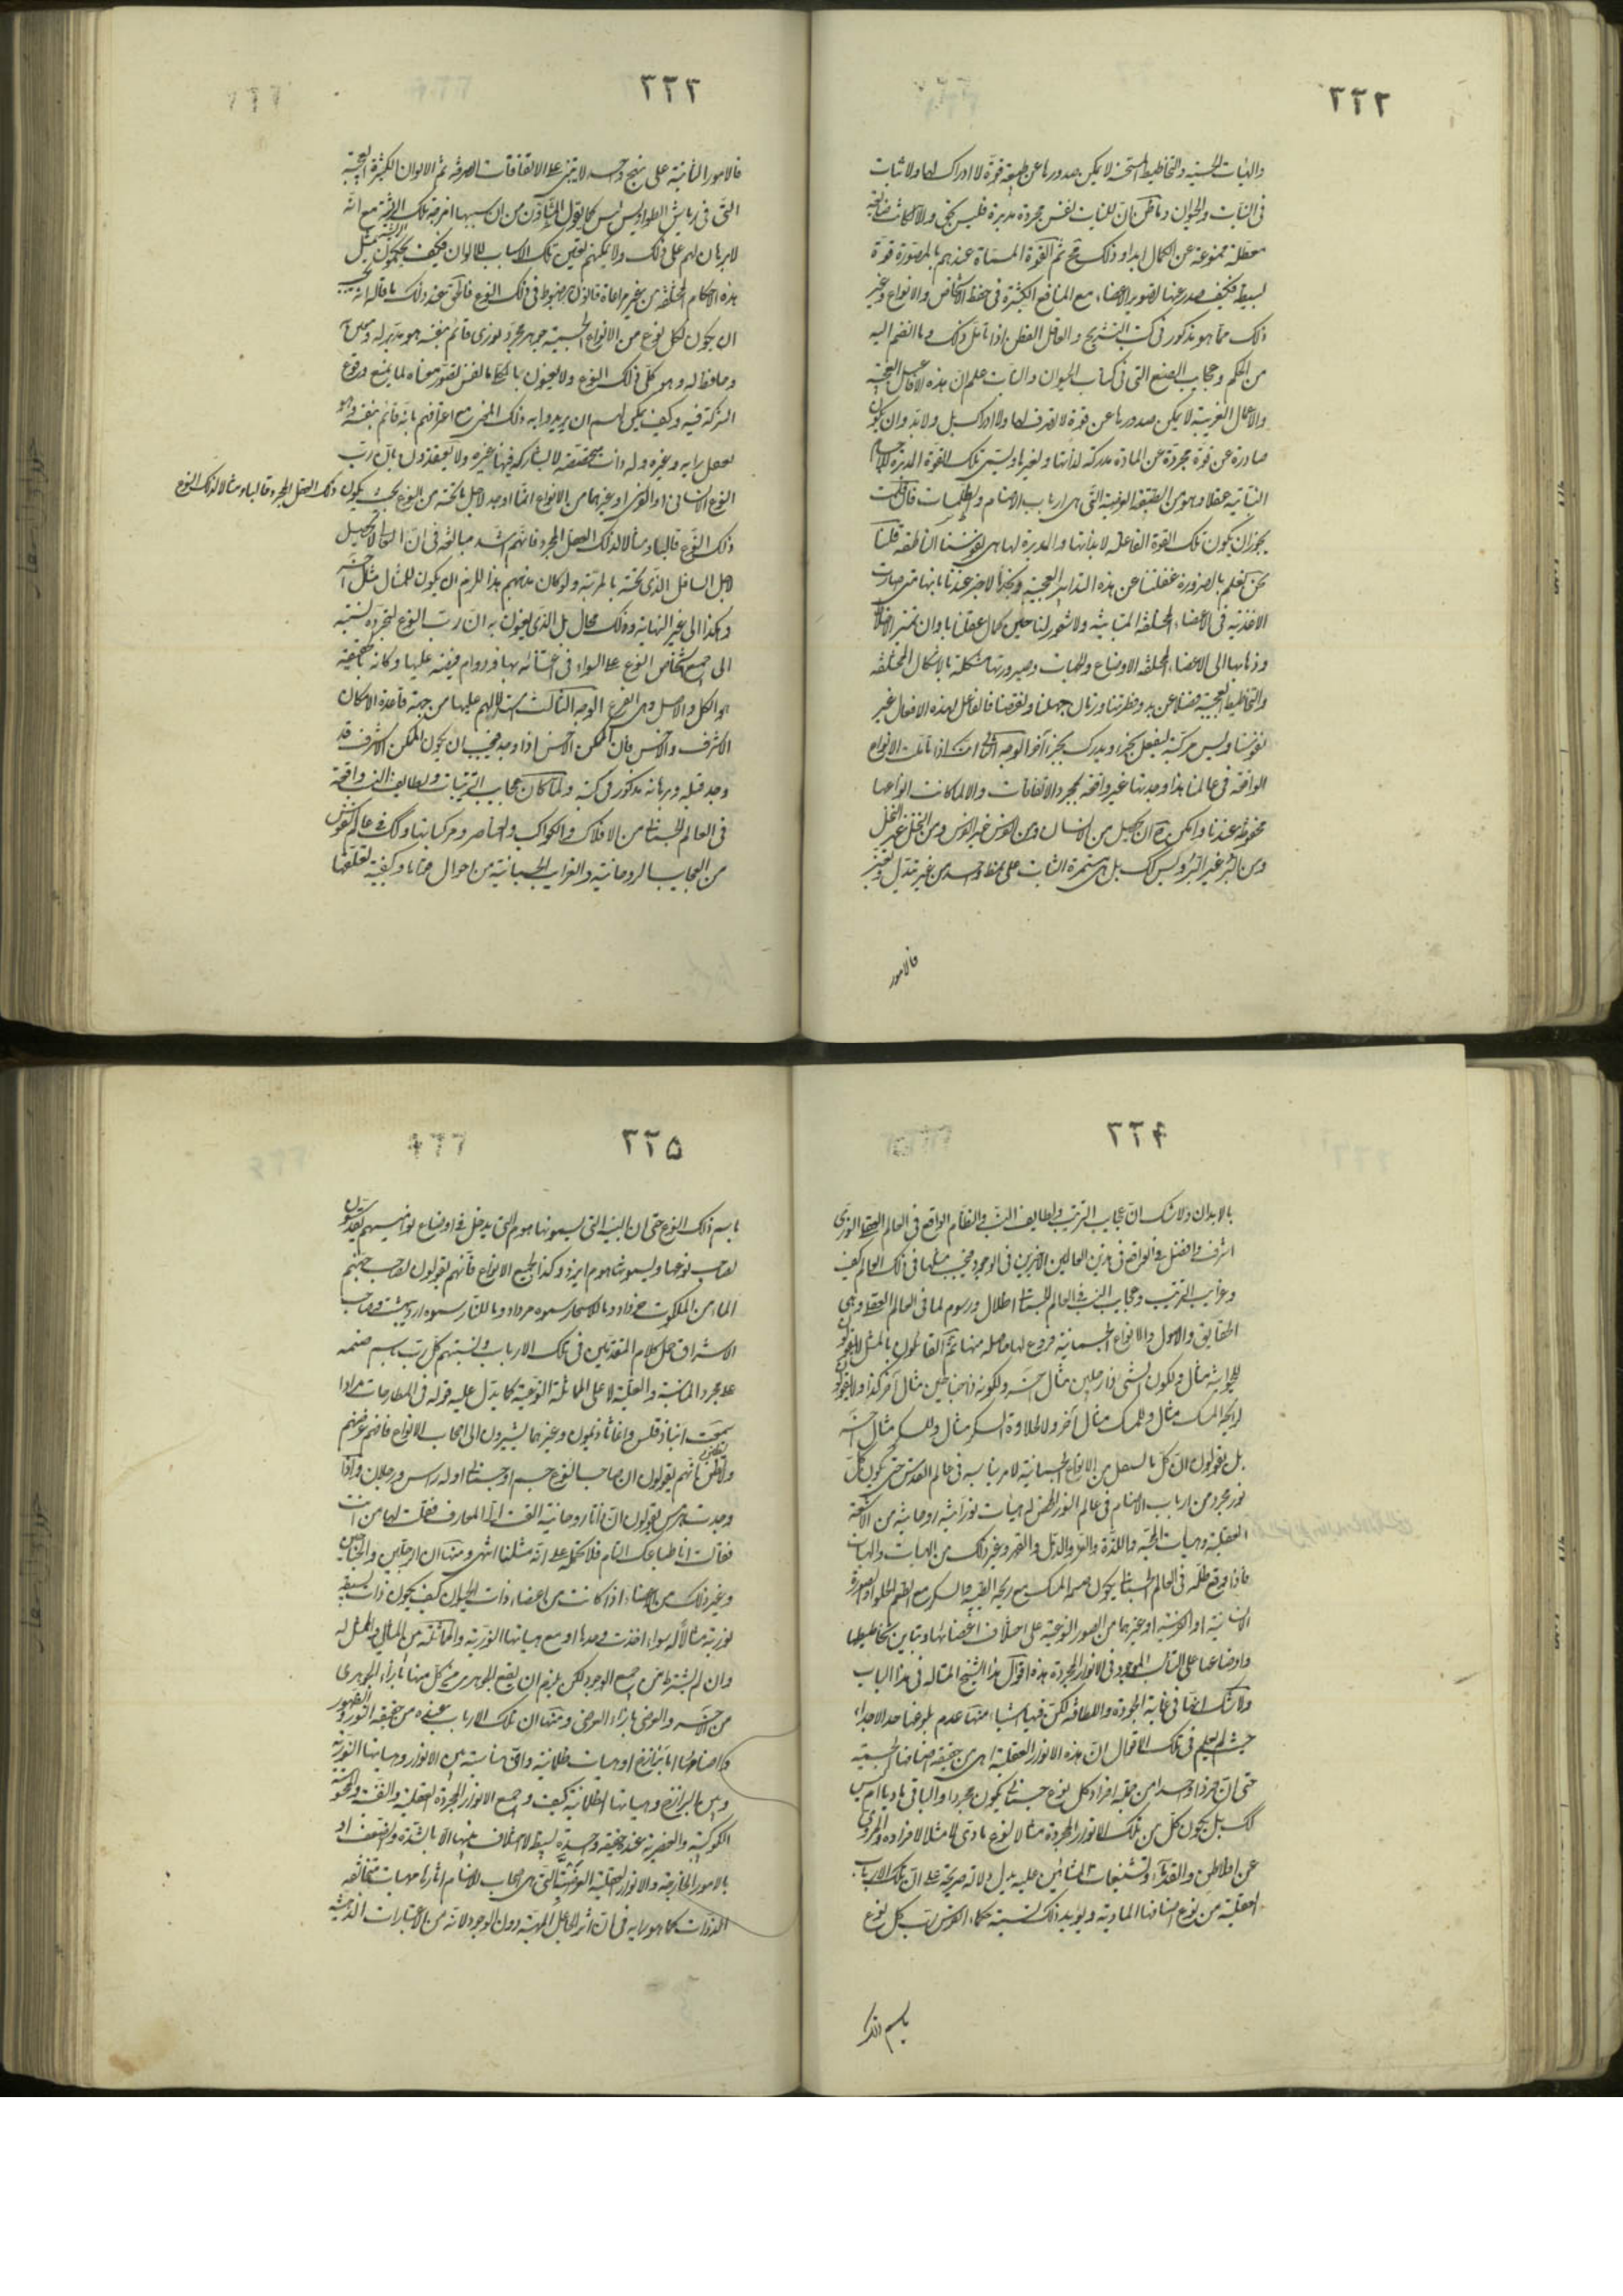 ٢٢٢
والهيآت الحسنة والتخاطيط المستحسنة لا يمكن صدورها عن طبيعة قوة لا ادراك لها ولا ثبات
في النبات والحيوان وما ظن ان للنبات نفس مجردة مدبرة فليس بحق والا لكانت ضائعة
معطلة ممنوعة عن الكمال ابدا وذلك مح ثم القوة المسماة عندهم بالمصورة قوة
بسيطة فكيف صدر عنها تصوير الاعضاء مع المنافع الكثيرة في حفظ الاشخاص والانواع وغير
ذلك مما هو مذكور في كتب التشريح والعاقل الفطن اذا تأمل ذلك وما انضم اليه
من الحكم وعجايب الصنع التي في كتاب الحيوان والنبات علم ان هذه الافاعيل العجيبة
والاعمال الغريبة لا يمكن صدورها عن قوة لا تصرف لها ولا ادراك بل ولا بد وان يكون
صادرة عن قوة مجردة عن المادة مدركة لذاتها ولغيرها ويسمى تلك القوة المدبرة للاجسام
النباتية عقلا وهو من الطبقة العرضية التي هي ارباب الاصنام والطلسمات فان قلت
يجوز ان يكون تلك القوة الفاعلة لابداننا والمدبرة لها هي نفوسنا الناطقة قلنا
نحن نعلم بالضرورة غفلتنا عن هذه التدابير العجيبة ونجزم لا خبر عندنا بانها متى صارت
الاغذية في الاعضاء المختلفة المتباينة ولا شعور لنا حين كمال عقلنا باوان تميز الاخلاط
وذهابها الى الاعضاء المختلفة الاوضاع والجهات وصيرورتها مشكلة بالاشكال المختلفة
والتخاطيط العجيبة فضلا عن بدو فطرتنا وزمان جهلنا ونقصنا فالفاعل لهذه الافعال غير
نفوسنا وليس مركبة ليفعل بجزء ويدرك بجزء آخر الوجه الثاني انك اذا تأملت الانواع
الواقعة في عالمنا هذا وجدتها غير واقعة بمجرد الاتفاقات والا لما كانت انواعها
محفوظة عندنا وامكن ح ان يحصل من الانسان ومن الفرس غير الفرس ومن النخل غير النخل
ومن البر غير البر وليس كك بل هي مستمرة الثبات على نمط واحد من غير تبدل وتغير
فالامور
٢٢٣
فالامور الثابتة على نهج واحد لا يبتنى على الاتفاقات الصرفة ثم الالوان الكثيرة العجيبة
التي في رياش الطواويس ليس كما يقول المشاؤن من ان سببها امزجة تلك الريشة مع انه
لا برهان لهم على ذلك ولا يمكنهم تعيين تلك الاسباب للالوان فكيف يحكمون بمثل
هذه الاحكام المختلفة من غير مراعاة قانون مضبوط في ذلك النوع فالحق عند ذلك ما قاله انه يجب
ان يكون لكل نوع من الانواع الجسمية جوهر مجرد نوري قائم بنفسه هو مدبر له ومعتن
وحافظ له وهو كلي ذلك النوع ولا يعنون بالكلي ما نفس تصور معناه لا يمنع وقوع
الشركة فيه وكيف يمكن لهم ان يريدوا به ذلك المعنى مع اعترافهم بانه قائم بنفسه وهو
يعقل ذاته وغيره وله ذات متخصصة لا يشاركه فيها غيره ولا يعتقدون بان رب
النوع الانساني او الفرسي او غيرهما من الانواع انما اوجد لاجل ما تحته من النوع بحيث يكون ذلك العقل المجرد قالبا ومثالا لذلك النوع
ذلك النوع قالبا ومثالا لذلك العقل المجرد فانهم اشد مبالغة في ان العالي لا يحصل
لاجل السافل الذي تحته بالمرتبة ولو كان مذهبهم هذا للزم ان يكون للمثال مثال آخر
وهكذا الى غير النهاية وذلك محال بل الذي يعنون به ان رب النوع لتجرده نسبته
الى جميع اشخاص النوع على السواء في اعتنائه بها ودوام فيضه عليها وكانه بالحقيقة
هو الكل والاصل وهي الفرع الوجه الثالث استدلالهم عليها من جهة قاعدة الامكان
الاشرف والاخس فان الممكن الاخس اذا وجد فيجب ان يكون الممكن الاشرف قد
وجد قبله وبرهانه مذكور في كتبه ولما كان عجايب الترتيبات ولطايف النسب واقعة
في العالم الجسماني من الافلاك والكواكب والعناصر ومركباتها وكك في عالم النفوس
من العجايب الروحانية والغرايب الجسمانية من احوال قواها وكيفية تعلقها
٢٢۴
بالابدان ولا شك ان عجايب الترتيب ولطايف النسب والنظام الواقع في العالم العقلي النوري
اشرف وافضل من الواقعة في هذين العالمين الاخيرين في الوجود فيجب مثلها في ذلك العالم كيف
وغرايب الترتيب وعجايب النسب في العالم الجسماني اظلال ورسوم لما في العالم العقلي وهي
الحقايق والاصول والانواع الجسمانية فروع لها حاصلة منها ثم القائلون بالمثل لا يقولون
للحيوانية مثال ولكون الشيء ذا رجلين مثال آخر ولكونه ذا جناحين مثال آخر كذا ولا يقولون
لرائحة المسك مثال وللمسك مثال آخر ولا لحلاوة السكر مثال وللسكر مثال آخر
بل يقولون ان كل ما يستقل من الانواع الجسمانية له امر يناسبه في عالم القدس حتى يكون كل
نور مجرد من ارباب الاصنام في عالم النور المحض له هيآت نورانية روحانية من الاشعة
العقلية وهيآت المحبة واللذة والعز والذل والقهر وغير ذلك من الهيآت والجهات
فاذا وقع ظله في العالم الجسماني يكون صنمه المسك مع ريحه الطيبة والسكر مع الطعم الحلو او الصورة
الانسانية او الفرسية او غيرهما من الصور النوعية على اختلاف اعضائها وتباين تخاطيطها
واوضاعها على التناسب الموجود في الانوار المجردة هذه اقوال هذا الشيخ المتاله في هذا الباب
ولا شك انها في غاية الجودة واللطافة لكن فيها اشياء منها عدم بلوغها حد الاجداء
حيث لم يعلم من تلك الاقوال ان هذه الانوار العقلية اهي من حقيقة اصنامها الحسية
حتى ان فردا واحدا من جملة افراد كل نوع جسماني يكون مجردا والباقي ماديا ام ليس
كك بل يكون كل من تلك الانوار المجردة مثالا لنوع مادي لا مثلا لافراده والمروي
عن افلاطن والقدماء وتشنيعات المشائين عليه يدل دلالة صريحة على ان تلك الارباب
العقلية من نوع اصنامها المادية ويؤيد ذلك تسمية حكماء الفرس رب كل نوع
باسم ذلك
٢٢۵
باسم ذلك النوع حتى ان النبتة التي يسمونها هوم التي يدخل في اوضاع نواميسهم يقدسون
لصاحب نوعها ويسمونها هوم ايزد وكذا لجميع الانواع فانهم يقولون لصاحب صنم
الماء من الملكوت خرداد وما للاشجار سموه مرداد وما للنار سموه ارديبهشت وصاحب
الاشراق حمل كلام المتقدمين في تلك الارباب وتسميتهم كل رب باسم صنمه
على مجرد المناسبة والعلية لا على المماثلة النوعية كما يدل عليه قوله في المطارحات واذا
سمعت انباذقلس واغاثاذيمون وغيرهما يشيرون الى اصحاب الانواع فافهم غرضهم
ولا تظنن انهم يقولون ان صاحب النوع جسم او جسماني او له راس ورجلان واذا
وجدت هرمس يقول ان ذاتا روحانية القت الي المعارف فقلت لها من انت
فقالت انا طباعك التام فلا تحمله على انه مثلنا انتهى ومنها ان الرجلين والجناحين
وغير ذلك من الاعضاء اذا كانت من اعضاء ذات الحيوان كيف يكون ذات بسيطة
نورية مثالا له سواء اخذت وحدها او مع هيآتها النورية والمماثلة بين المثال والممثل له
وان لم يشترط من جميع الوجوه لكن يلزم ان يقع الجوهري من كل منهما بازاء الجوهري
من الآخر والعرضي بازاء العرضي ومنها ان تلك الارباب عنده من حقيقة النور والظهور
واصنامها اما برازخ او هيآت ظلمانية واي مناسبة بين الانوار وهيآتها النورية
وبين البرازخ وهيآتها الظلمانية كيف وجميع الانوار المجردة العقلية والنفسية والمحسوسة
الكوكبية والعنصرية عنده حقيقة واحدة بسيطة لا اختلاف بينها الا بالشدة والضعف او
بالامور الخارجة والانوار العقلية العرضية التي هي اصحاب الاصنام آثارها مهيات متخالفة
الذوات كما هو رايه في ان اثر الجاعل المهية دون الوجود لانه من الاعتبارات الذهنية